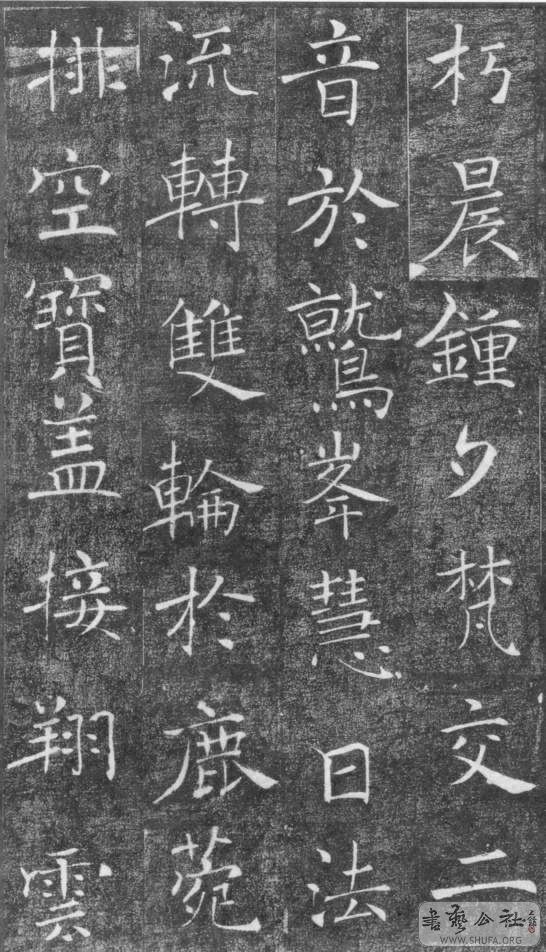 朽晨鍾夕梵交二
音於鷲峯慧日法
流轉雙輪於鹿菀
排空寳盖接翔雲
書藝公社
WWW.SHUFA.ORG